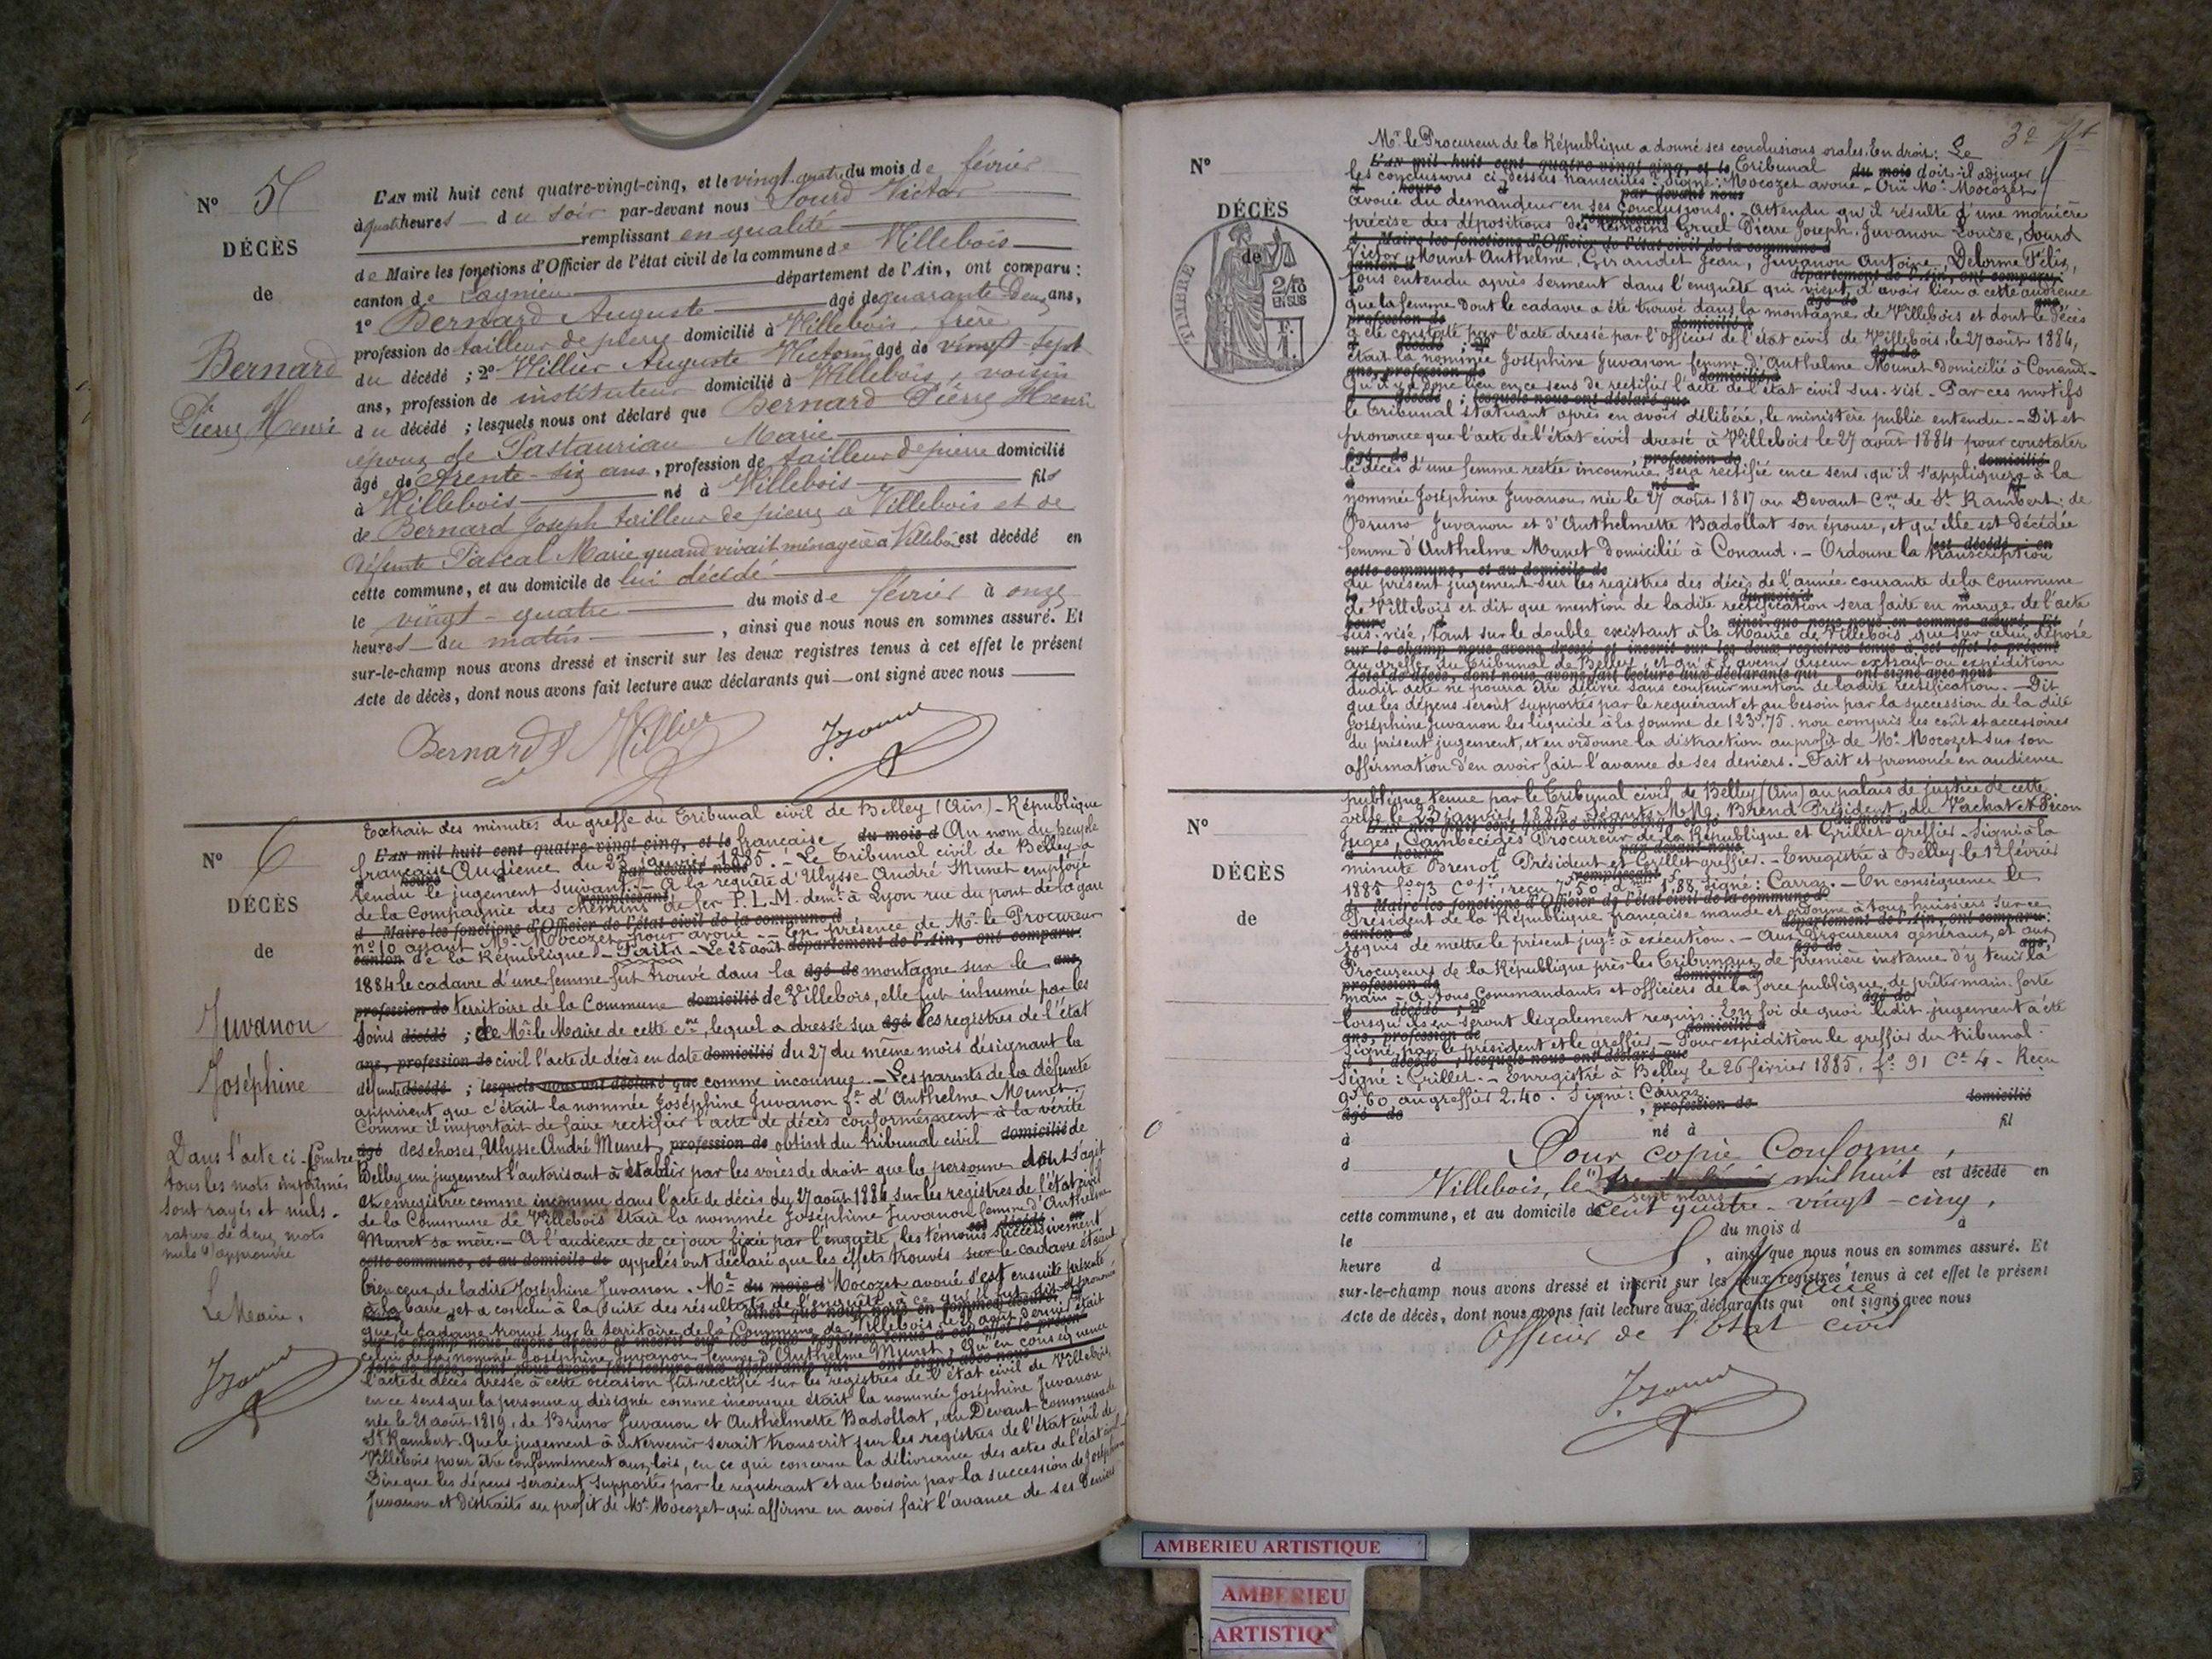 N° 5
DÉCÈS
de
Bernard
Pierre Henri
L'AN mil huit cent quatre-vingt-cinq, et le vingt-quatre du mois de février
à quatre heures du soir par-devant nous Sourd Victor
remplissant en qualité
de Maire les fonctions d'Officier de l'état civil de la commune de Villebois
canton de Lagnieu département de l'Ain, ont comparu :
1° Bernard Auguste âgé de quarante-deux ans,
profession de tailleur de pierre domicilié à Villebois, frère
du décédé ; 2° Villier Auguste Victorin âgé de vingt-sept
ans, profession de instituteur domicilié à Villebois, voisin
du décédé ; lesquels nous ont déclaré que Bernard Pierre Henri
époux de Pastaurian Marie
âgé de trente-six ans, profession de tailleur de pierre domicilié
à Villebois né à Villebois fils
de Bernard Joseph tailleur de pierre à Villebois et de
défunte Pascal Marie quand vivait ménagère à Villebois est décédé en
cette commune, et au domicile de lui décédé
le vingt-quatre du mois de février à onze
heures du matin, ainsi que nous nous en sommes assuré. Et
sur-le-champ nous avons dressé et inscrit sur les deux registres tenus à cet effet le présent
Acte de décès, dont nous avons fait lecture aux déclarants qui ont signé avec nous
Bernard Villier
N° 6
DÉCÈS
de
Juvanon
Joséphine
Dans l'acte ci-contre
tous les mots imprimés
sont rayés et nuls.
rature de deux mots
nuls approuvée
Le Maire,
Extrait des minutes du greffe du Tribunal civil de Belley (Ain) - République
L'AN mil huit cent quatre-vingt-cinq, et le française du mois d Au nom du peuple
français Audience du 23 janvier 1885. - Le Tribunal civil de Belley a
rendu le jugement suivant : - A la requête d'Ulysse André Munet employé
de la Compagnie des chemins de fer P.L.M. demt à Lyon rue du pont de la gare
d Maire les fonctions d'Officier de l'état civil de la commune d
n° 10 ayant Me Mocozet pour avoué - En présence de Mr le Procureur
canton de la République - Faits - Le 25 août département de l'Ain, ont comparu :
1884 le cadavre d'une femme fut trouvé dans la âgé de montagne sur le ans,
profession de territoire de la Commune domicilié de Villebois, elle fut inhumée par les
soins décédé ; de Mr le Maire de cette cne, lequel a dressé sur âgé les registres de l'état
ans, profession de civil l'acte de décès en date domicilié du 27 du même mois désignant la
défunte décédé ; lesquels nous ont déclaré que comme inconnue. - Les parents de la défunte
apprirent que c'était la nommée Joséphine Juvanon fe d'Anthelme Munet,
Comme il importait de faire rectifier l'acte de décès conformément à la vérité
âgé des choses, Ulysse André Munet, profession de obtint du tribunal civil domicilié de
Belley un jugement l'autorisant à établir par les voies de droit que la personne dont s'agit
et enregistrée comme inconnue dans l'acte de décès du 27 août 1884 sur les registres de l'état civil
de la Commune de Villebois était la nommée Joséphine Juvanon femme d'Anthelme
Munet sa mère. - A l'audience de ce jour fixée par l'enquête, les témoins successivement
cette commune, et au domicile de appelés ont déclaré que les effets trouvés sur le cadavre étaient
bien ceux de ladite Joséphine Juvanon. Me du mois d Mocozet avoué s'est ensuite présenté
à la barre, et a conclu à la suite des résultats de l'enquête à ce qu'il fut dit et prononcé
que le cadavre trouvé sur le territoire de la Commune de Villebois le 25 août dernier était
celui de la nommée Joséphine Juvanon femme d'Anthelme Munet, Qu'en conséquence
l'acte de décès dressé à cette occasion fut rectifié sur les registres de l'état civil de Villebois
en ce sens que la personne y désignée comme inconnue était la nommée Joséphine Juvanon
née le 21 août 1819, de Bruno Juvanon et Anthelmette Badollat, au Devant commune de
St Rambert. Que le jugement à intervenir serait transcrit sur les registres de l'état civil de
Villebois pour être conformément aux lois, en ce qui concerne la délivrance des actes de l'état civil
Dire que les dépens seraient supportés par le requérant et au besoin par la succession de Joséphine
Juvanon et distraits au profit de Me Mocozet qui affirme en avoir fait l'avance de ses deniers
N°
DÉCÈS
de
TIMBRE
2/10
EN SUS
F.
Mr le Procureur de la République a donné ses conclusions orales. En droit : Le
L'AN mil huit cent quatre-vingt-cinq, et le Tribunal du mois doit-il adjuger
les conclusions ci-dessus transcrites : Signé : Mocozet avoué - Ouï Me Mocozet
avoué du demandeur en ses conclusions. - Attendu qu'il résulte d'une manière
précise des dépositions des témoins Gruel Pierre Joseph, Juvanon Louise, Sourd
d Maire les fonctions d'Officier de l'état civil de la commune d
Victor, Munet Anthelme, Giraudet Jean, Juvanon Antoine, Delorme Félix,
tous entendu après serment dans l'enquête qui vient d'avoir lieu à cette audience
que la femme dont le cadavre a été trouvé dans la montagne de Villebois et dont le décès
a été constaté par l'acte dressé par l'officier de l'état civil de Villebois, le 27 août 1884,
était la nommée Joséphine Juvanon femme d'Anthelme Munet domicilié à Conand -
Qu'il y a donc lieu en ce sens de rectifier l'acte de l'état civil sus-visé - Par ces motifs
le Tribunal statuant après en avoir délibéré, le ministère public entendu. - Dit et
prononce que l'acte de l'état civil dressé à Villebois le 27 août 1884 pour constater
le décès d'une femme restée inconnue, sera rectifié en ce sens, qu'il s'appliquera à la
nommée Joséphine Juvanon née le 27 août 1817 au Devant Cne de St Rambert, de
Bruno Juvanon et d'Anthelmette Badollat son épouse, et qu'elle est décédée
femme d'Anthelme Munet domicilié à Conand. - Ordonne la transcription
du présent jugement sur les registres des décès de l'année courante de la Commune
de Villebois et dit que mention de ladite rectification sera faite en marge de l'acte
sus-visé, tant sur le double existant à la Mairie de Villebois, que sur celui déposé
au greffe du Tribunal de Belley, et qu'à l'avenir aucun extrait ou expédition
dudit acte ne pourra être délivré sans contenir mention de ladite rectification. - Dit
que les dépens seront supportés par le requérant et au besoin par la succession de la dite
Joséphine Juvanon les liquide à la somme de 123f,75. non compris les coût et accessoires
du présent jugement, et en ordonne la distraction au profit de Me Mocozet sur son
affirmation d'en avoir fait l'avance de ses deniers. - Fait et prononcé en audience
N°
DÉCÈS
de
publique tenue par le Tribunal civil de Belley (Ain) au palais de justice de cette
ville le 23 janvier 1885. Séants MMrs Brend Président, du Vachat et Pécon
Juges, Cambecédès Procureur de la République et Grillet greffier - Signé à la
minute Président et Grillet greffier. - Enregistré à Belley le 12 février
1885 fo 73 Signé : Carraz. - En conséquence le
d Maire les fonctions d'Officier de l'état civil de la commune d
Président de la République française mande et ordonne à tous huissiers sur ce
requis de mettre le présent jugt à exécution. - Aux Procureurs généraux et aux
Procureurs de la République près les Tribunaux de première instance d'y tenir la
main - A tous Commandants et officiers de la force publique de prêter main-forte
lorsqu'ils en seront légalement requis. En foi de quoi ledit jugement a été
signé par le président et le greffier. - Pour expédition le greffier du tribunal -
Signé : Grillet. - Enregistré à Belley le 26 février 1885, fo 91 Ce 4 - Reçu
9f,60 au greffier 2.40. Signé : Carraz.
âgé de , profession de domicilié
à né à fil
Pour copie Conforme,
Villebois, le sept mars mil huit est décédé en
cette commune, et au domicile de cent quatre-vingt-cinq,
le du mois d à
heure d , ainsi que nous nous en sommes assuré. Et
sur-le-champ nous avons dressé et inscrit sur les deux registres tenus à cet effet le présent
Le Maire
Acte de décès, dont nous avons fait lecture aux déclarants qui ont signé avec nous
Officier de l'Etat civil
AMBERIEU ARTISTIQUE
AMBERIEU
ARTISTIQ